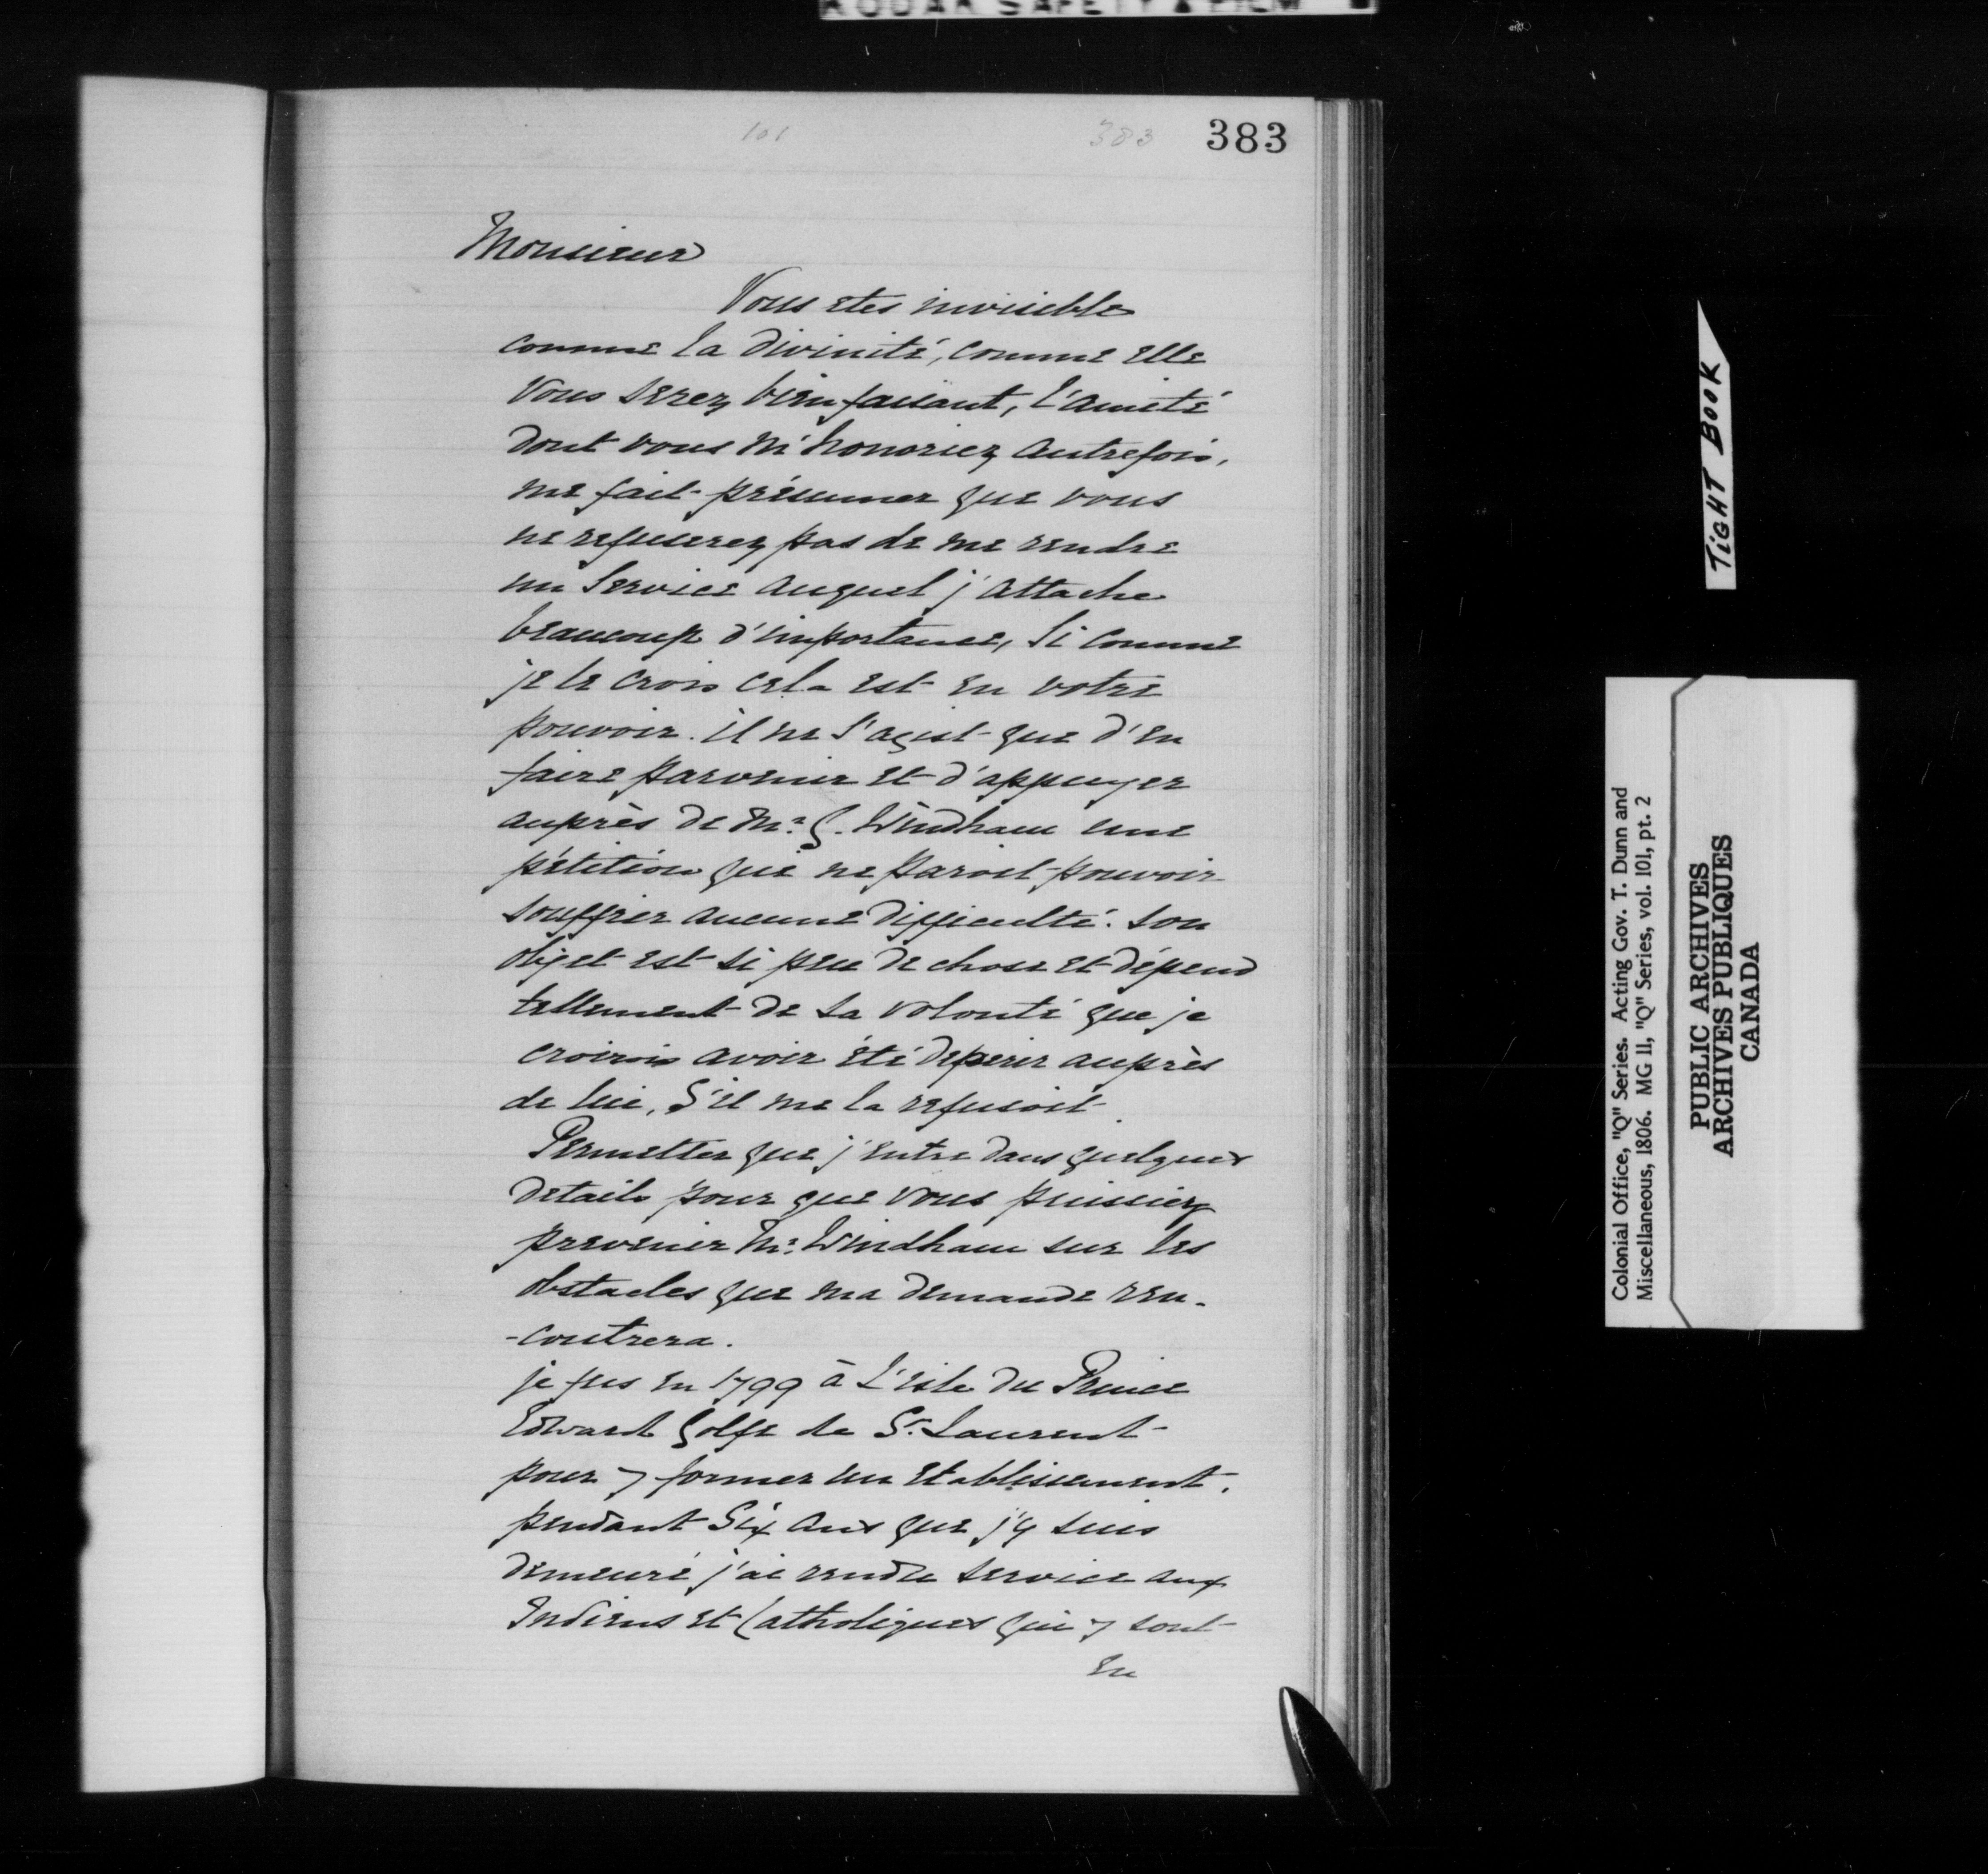 KODAK SAFETY FILM
101 383 383
Monsieur
Vous etes invisible
comme la Divinité, comme elle
Vous serez bienfaisant, l'amitié
dont vous m'honoriez autrefois,
me fait présumer que vous
ne refuserez pas de me rendre
un Service auquel j'attache
beaucoup d'importance, si comme
je le crois cela est en votre
pouvoir. il ne s'agist que d'en
faire parvenir et d'appuyer
auprès de Mr. G. Windham une
pétition qui ne paroit pouvoir
souffrir aucune difficulté. son
objet est si peu de chose et dépend
tellement de sa volonté que je
croirois avoir été auprès
de lui, s'il me la refusoit.
Permettez que j'entre dans quelques
details pour que vous puissiez
prevenir Mr. Windham sur les
obstacles que ma demande ren-
-contrera.
je fus en 1799 à L'isle du Prince
Edward Golfe de St. Laurent
pour y former un etablissement.
pendant Six ans que j'y suis
demeuré j'ai rendu service aux
Indiens et Catholiques qui y sont
en
TIGHT BOOK
Colonial Office, "Q" Series. Acting Gov. T. Dunn and
Miscellaneous, 1806. MG 11, "Q" Series, vol. 101, pt. 2
PUBLIC ARCHIVES
ARCHIVES PUBLIQUES
CANADA